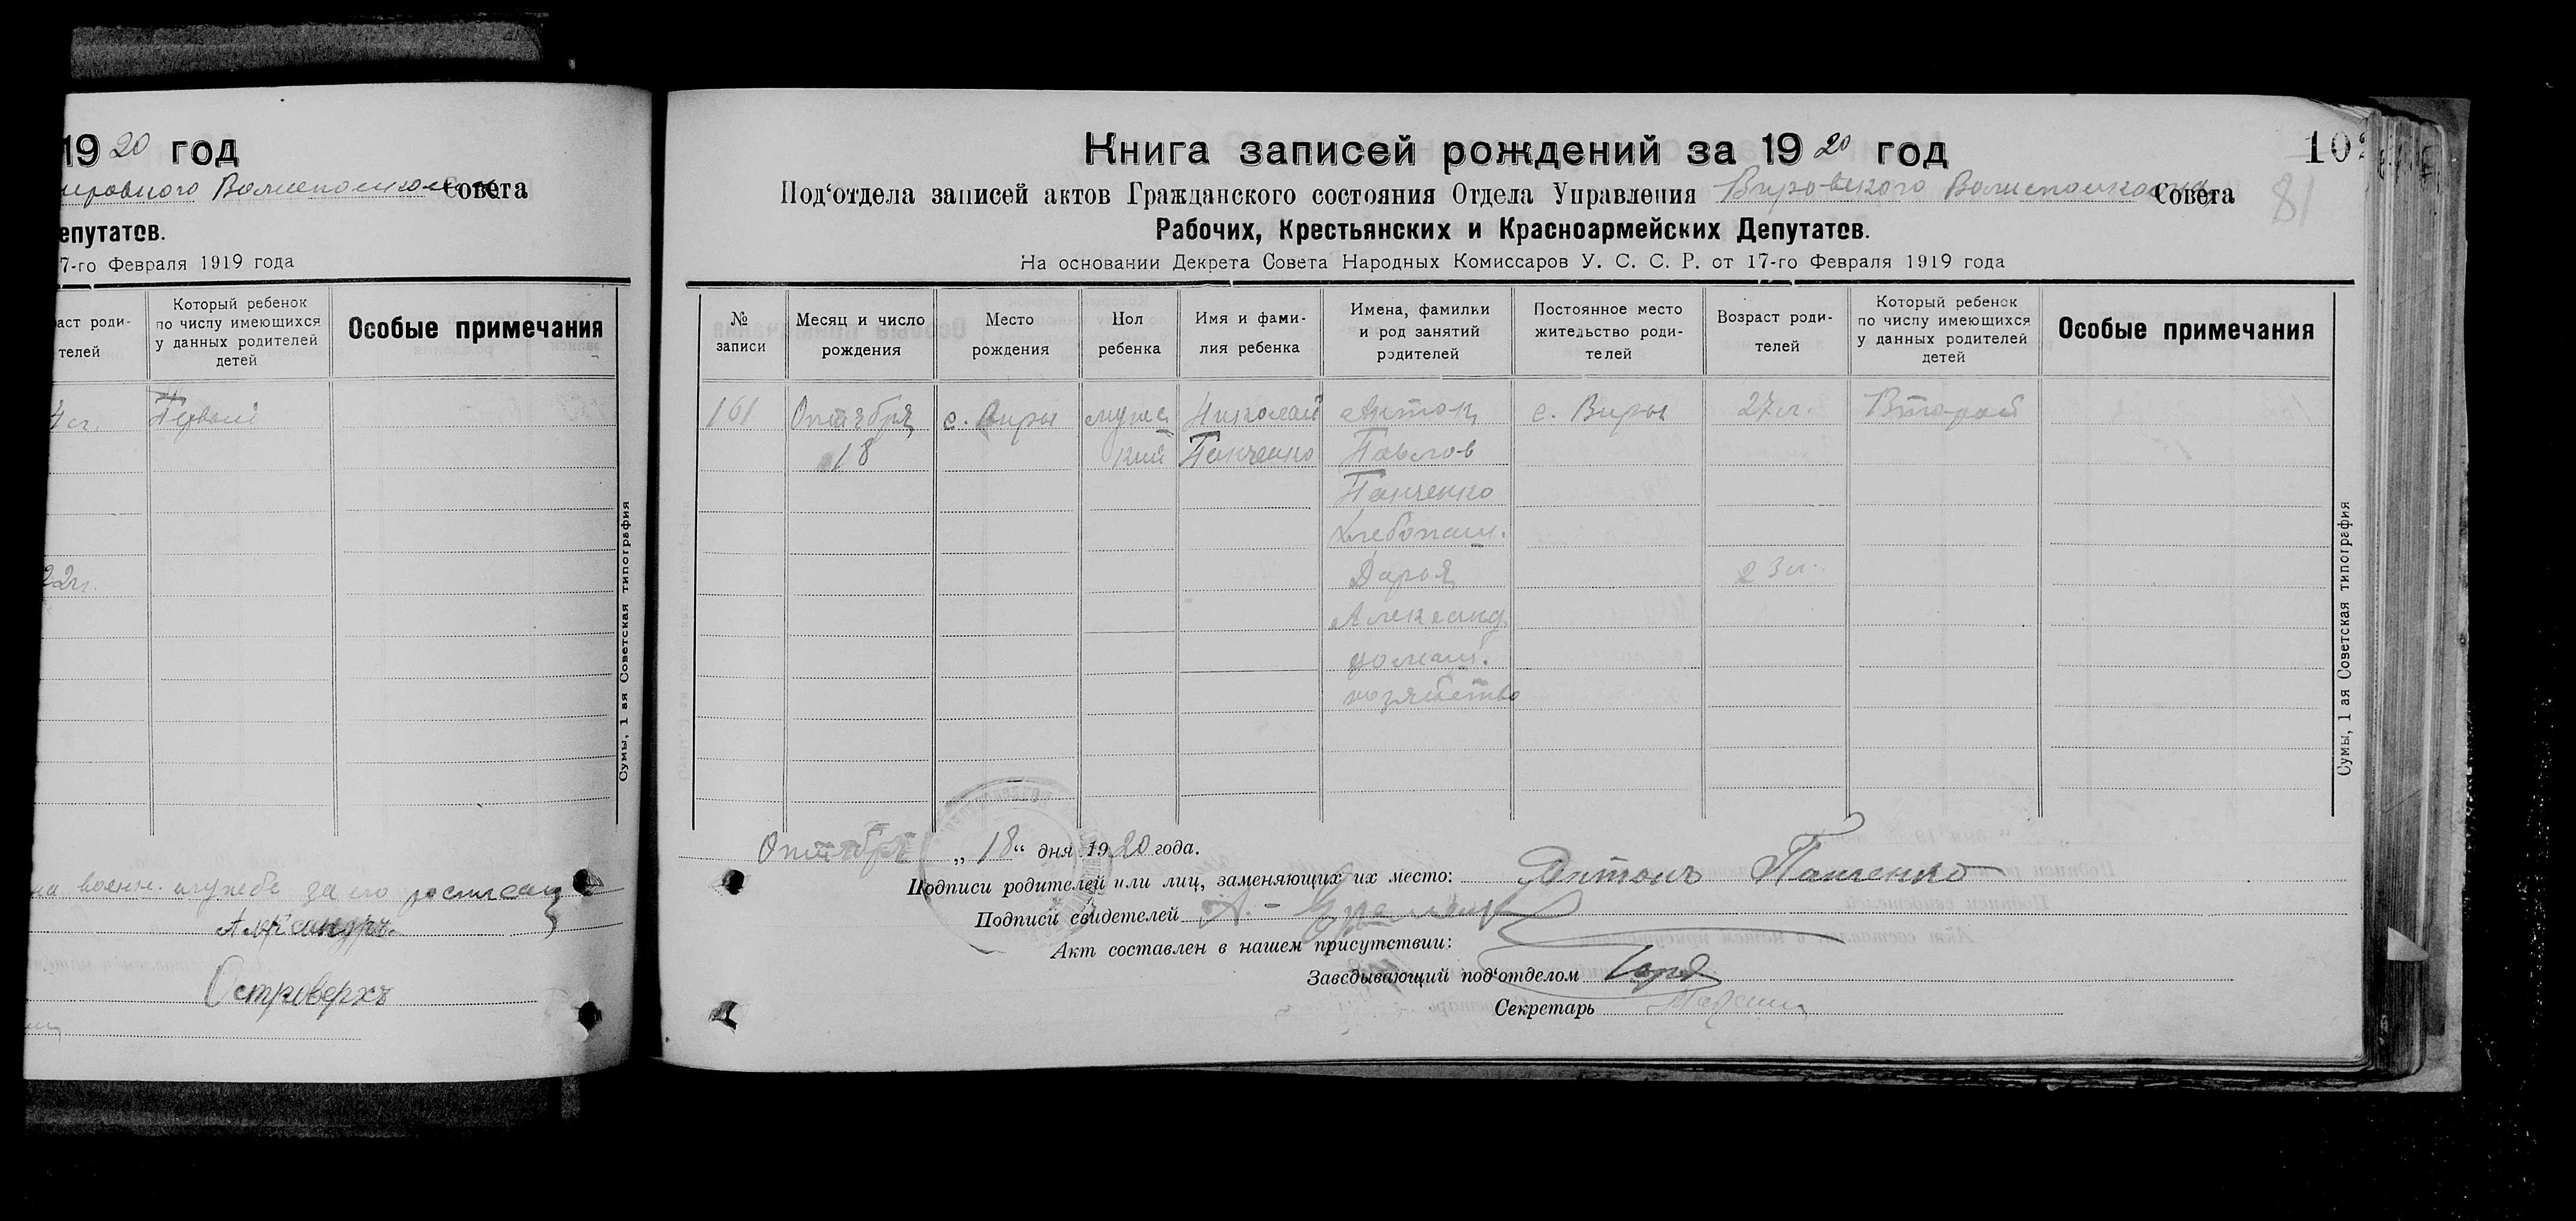 19 20 год
Совета
епутатов.
7-го Февраля 1919 года
аст роди-
телей
Который ребенок
по числу имеющихся
у данных родителей
детей
Особые примечания
Первый
22л.
на военн. службе за его росписал
Александръ
Островерхъ
Сумы, 1 ая Советская типография
Книга записей рождений за 19 20 год
102
81
Под‘отдела записей актов Гражданского состояния Отдела Управления Вировского Волисполкома Совета
Рабочих, Крестьянских и Красноармейских Депутатов.
На основании Декрета Совета Народных Комиссаров У. С. С. Р. от 17-го Февраля 1919 года
№
записи
Месяц и число
рождения
Место
рождения
Пол
ребенка
Имя и фами-
лия ребенка
Имена, фамилии
и род занятий
родителей
Постоянное место
жительство роди-
телей
Возраст роди-
телей
Который ребенок
по числу имеющихся
у данных родителей
детей
Особые примечания
161 Октября с. Виры мужс Николай Антон с. Виры 27 л. Второй
18 кий Панченко Павлов
Панченко
Хлебопаш.
Дарья 23 л.
Александ
домаш.
хозяйство
Сумы, 1 ая Советская типография
Октября „ 18 “ дня 19 20 года.
Подписи родителей или лиц, заменяющих их место: Антонъ Панченко
Подписи свидетелей
Акт составлен в нашем присутствии:
Заведывающий под‘отделом
Секретарь